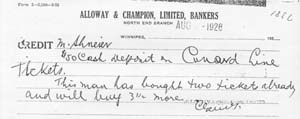 ALLOWAY & CHAMPION, LIMITED, BANKERS
NORTH END BRANCH
WINNIPEG, AUG 1926
CREDIT M.
$50 Cash deposit on Cunard Line
Tickets.
This man has bought two tickets already
and will buy 3 more